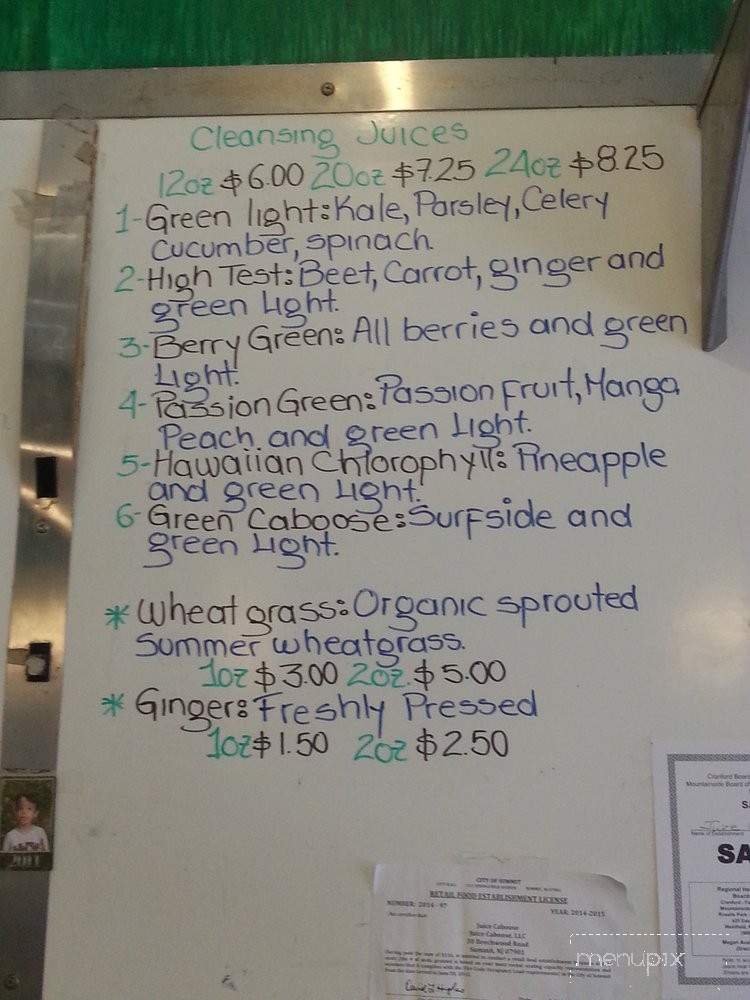 Cleansing Juices
12oz $6.00 20oz $7.25 24oz $8.25
1-Green light: Kale, Parsley, Celery
cucumber, spinach.
2-High Test: Beet, Carrot, ginger and
green Light.
3-Berry Green: All berries and green
Light.
4-Passion Green: Passion Fruit, Manga
Peach and green Light.
5-Hawaiian Chlorophyll: Pineapple
and green Light.
6-Green Caboose: Surfside and
green Light.
*Wheat grass: Organic sprouted
Summer wheatgrass.
1oz $3.00 2oz. $5.00
*Ginger: Freshly Pressed
1oz $1.50 2oz $2.50
2011
Cranford Board
Mountainside Board of
Juice
Name of Establishment
SA
Regional He
CITY OF SUMMIT
RETAIL FOOD ESTABLISHMENT LICENSE
NUMBER: 2014-97 YEAR: 2014-2015
Juice Caboose
Juice Caboose, LLC
30 Beechwood Road
Summit, NJ 07901
menupix